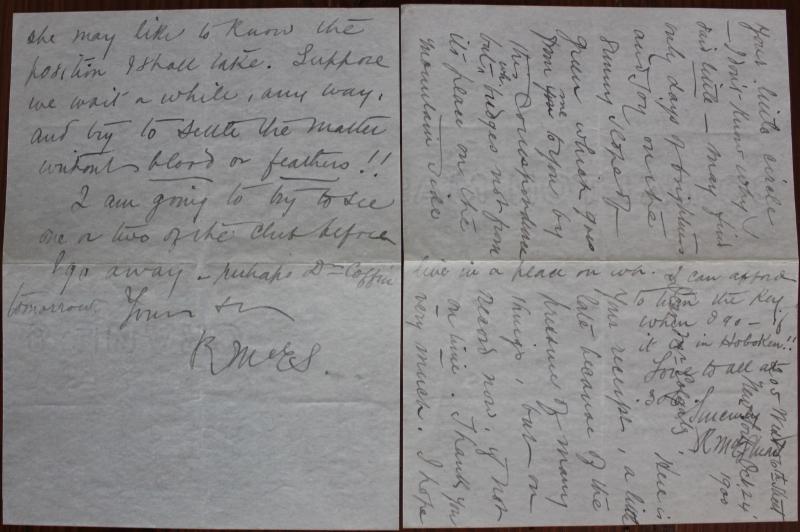 she may like to know the
position I shall take. Suppose
we wait a while, any way,
and try to settle the matter
without blood or feathers!!
I am going to try to see
one or two of the club before
I go away - perhaps Dr Coffin
tomorrow.
Yours
R McES.
New York Oct. 24
1900
Here is
your receipt, a little
late because of the
pressure of many
things, but on
record now, if not
on time. Thank you
very much. I hope
Your little circle
- I don't know why I
said little - may find
only days of brightness
and joy on the
sunny slope of
Glen which goes
from me to you by
this correspondence
but who budges not from
its place on the
mountain side
live in a place on wh. I can afford
to turn the key
when I go - if
it is in Hoboken!!
Love to all at
Sincerely